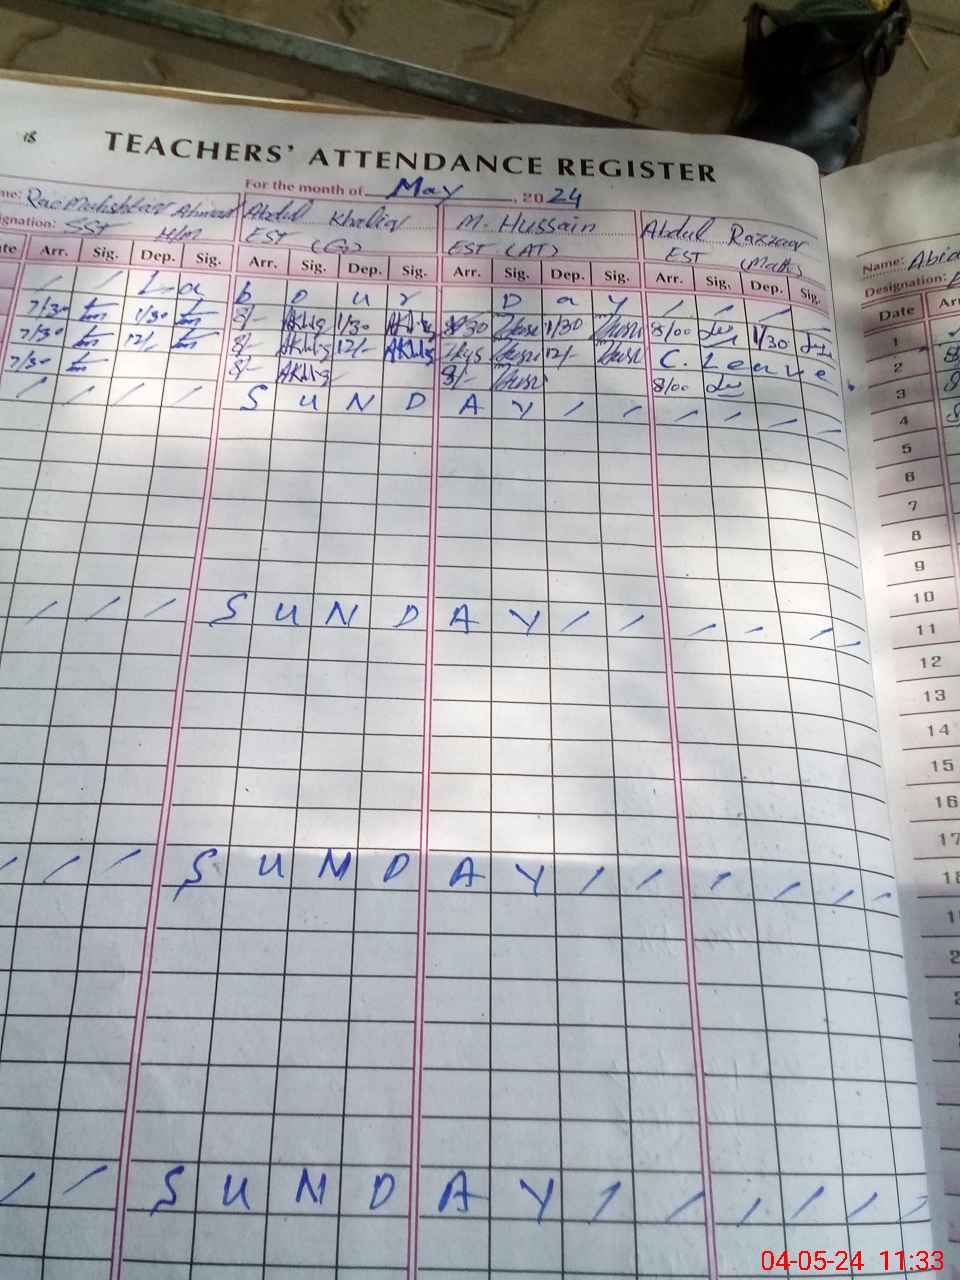 18
TEACHERS' ATTENDANCE REGISTER
For the month of May, 2024
me: Rao Ahmad Abdul Khaliq M. Hussain Abdul Razzaq
ignation: SST H/M EST (G) EST (AT) EST (Math)
te Arr. Sig. Dep. Sig. Arr. Sig. Dep. Sig. Arr. Sig. Dep. Sig. Arr. Sig. Dep. Sig.
/ / L a b o u r D a y / / / /
7/30 1/30 8/- 1/30 1/30 8/00 1/30
7/30 12/- 8/- 12/- 12/- C. Leave
7/30 8/- 8/- 8/00
/ / / / S U N D A Y / / / / / /
/ / / S U N D A Y / / / / / /
/ / / S U N D A Y / / / / / /
/ / S U N D A Y / / / / / /
Name: Abid
Designation:
Date Arr
1
2
3
4
5
6
7
8
9
10
11
12
13
14
15
16
17
18
04-05-24 11:33